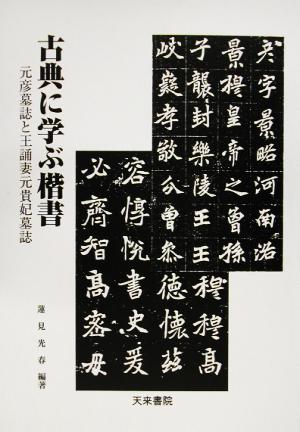 古典に学ぶ楷書
元彦墓誌と王誦妻元貴妃墓誌
蓮見光春 編著
彦字景略河南洛
景穆皇帝之曾孫
子襲封樂陵王王
岐嶷孝敬
穆穆髙
分曾叅德懷茲
容惇恱書史爰
必齊智髙密毋
天来書院